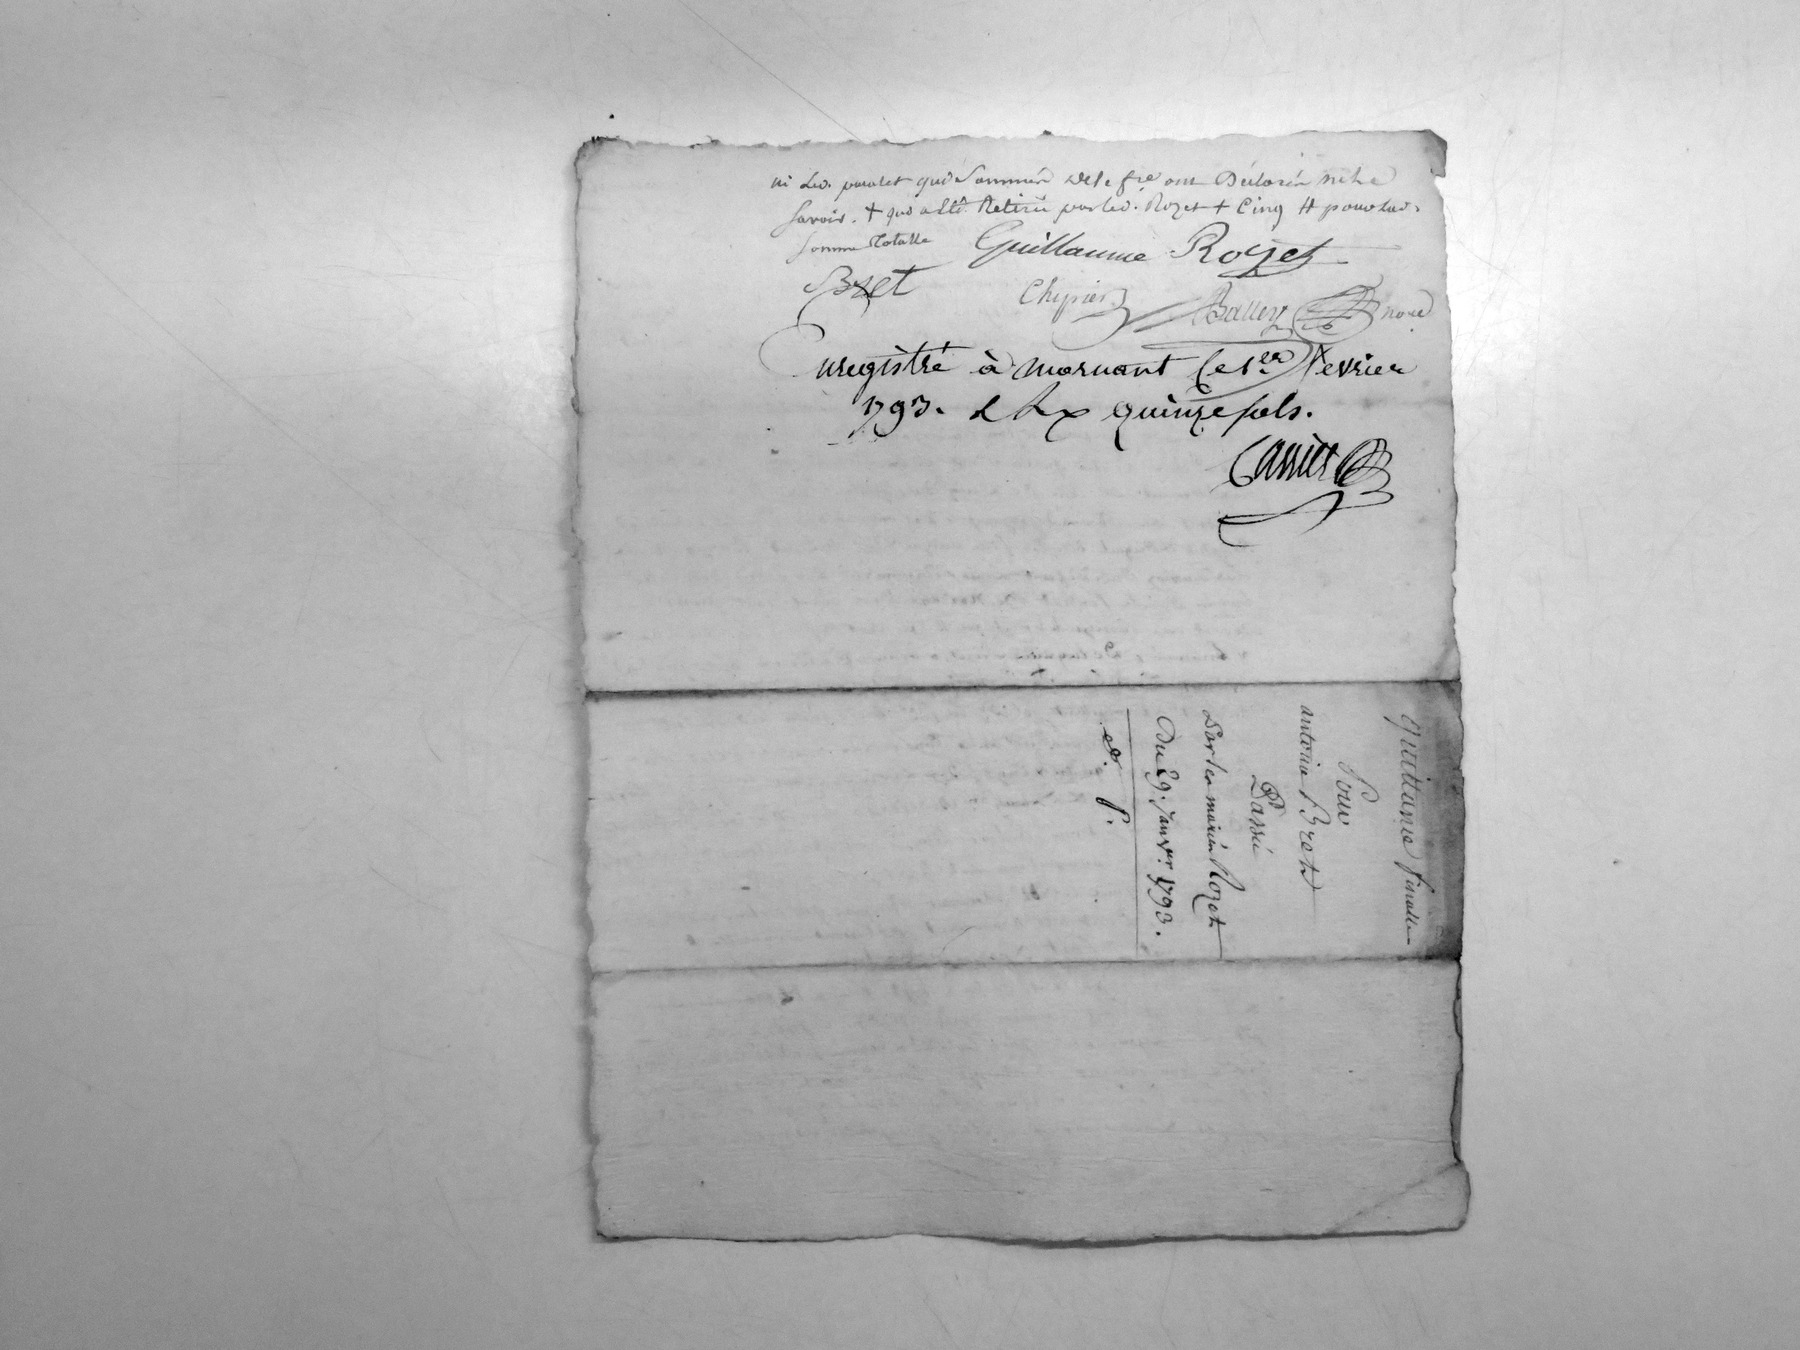 ni led. qui Sommés de le fre ont Déclarés ne le
Savoir. + qui a été Retiré par led. Rozet + Cinq ## pour lad.
Somme Totalle Guillaume Rozet
Bret Chipier Balley nore
Enregistré à mornant le 1er. fevrier
1793. quinze sols.
quittance finalle
Pour
antoine Bret
Passé
Par les mariés Rozet
Du 29. Janvr. 1793.